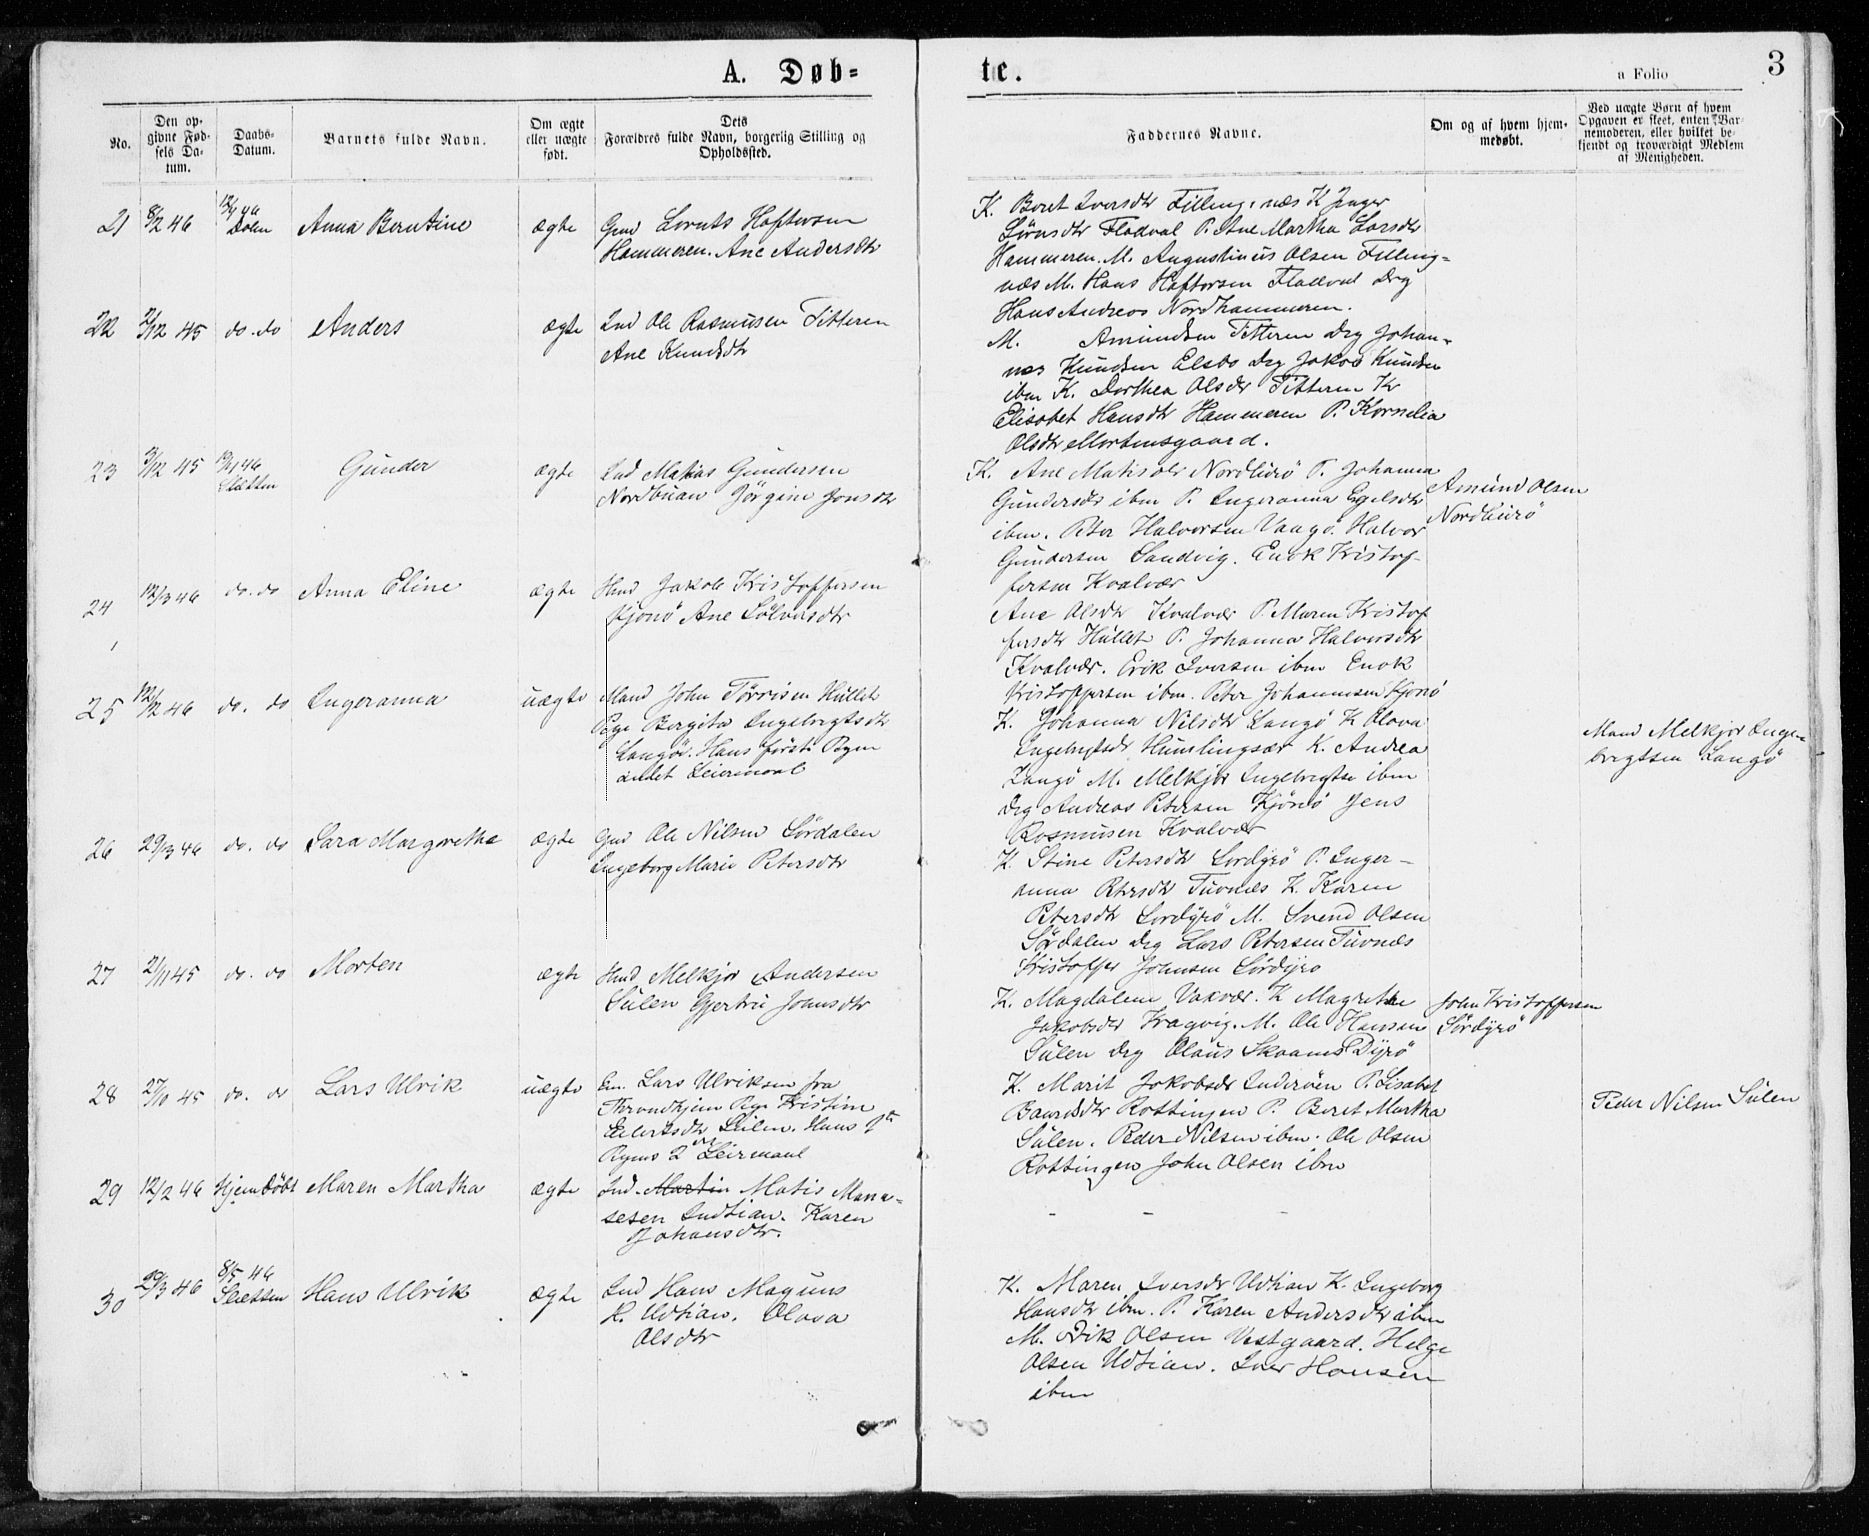 A. Døb=
te.
a Folio
3
No.
Den op-
givne Fød-
sels Da-
tum.
Daabs-
Datum.
Barnets fulde Navn.
Om ægte
eller uægte
født.
Dets
Forældres fulde Navn, borgerlig Stilling og
Opholdssted.
Faddernes Navne.
Om og af hvem hjem-
medøbt.
Ved uægte Børn af hvem
Opgaven er skeet, enten Bar-
nemoderen, eller hvilket be-
kjendt og troværdigt Medlem
af Menigheden.
21
8/2 46
12/4 46
Dolm
Anna Berntine
ægte
Gmd Lornts Haftorsen
Hammeren. Ane Andersdtr
K. Beret Iversdtr Fillingsnæs K Inger
Flodval P. Ane Martha Larsdtr
Hammeren. M. Augustinus Olsen Filling=
næs M. Hans Haftorsen Flodval Drg
Hans Andreas Nordhammeren.
22
2/12 45
do. do
Anders
ægte
Ind Ole Rasmusen Titteren
Ane Knudsdtr
M. Amundsen Titteren Drg Johan-
nes Knudsen Elsbo Drg Jakob Knudsen
ibm K. Dorthea Olsdtr Titteren K
Elisabet Hansdtr Hammeren P. Kornelia
Olsdtr Mortensgaard.
23
3/12 45
Sletten
Gunder
ægte
Ind Matias Gundersen
Nordbuan Jørgine Jonsdtr
K. Ane Nordburø P. Johanna
Gundersdtr ibm P. Ingeranna Egelsdtr
ibm. Peter Halvorsen Vangø. Halvor
Gundersen Sandvig. Enok Kristof-
fersen Kvalvær
Amund Olsen
Nordburø
24
12/3 46
do. do
Anna Eline
ægte
Hmd Jakob Kristoffersen
Kjønø Ane Sølversdtr
Ane Olsdtr Kvalvær P. Maren Kristof
fersdtr Hullet P. Johanna Halvorsdtr
Kvalvær. Erik Iversen ibm Enok
Kristoffersen ibm. Peter Johannesen Kjønø
25
12/2 46
do. do
Ingeranna
uægte
Mand John Tørrisen Hullet
Pige Bergita Ingebrigtsdtr
Langø. Hans første Pigen
andet Leiermaal
K. Johanna Nilsdtr Langø K Olava
Ingebrigtsdr Humlingsær K. Andrea
Langø M. Melkjor Ingebrigtsen ibm
Drg Andreas Petersen Kjønø Jens
Rasmusen Kvalvær
Mand Melkjor Inge-
brigtsen Langø
26
29/3 46
do. do
Sara Margrethe
ægte
Gmd Ole Nilsen Sørdalen
Engeborg Marie Petersdtr
K. Stine Petersdtr Sordyrø P. Inger-
anna Petersdtr Tuvnes K. Karen
Petersdtr Sordyrø M. Svend Olsen
Sørdalen Drg Lars Petersen Tuvnæs
Kristoffer Johnsen Sørdyrø
27
2/11 45
do. do
Morten
ægte
Hmd Melkjor Andersen
Sulen Gjertru Johnsdtr
K. Magdalena Vakvær. K Magrethe
Jakobsdtr Kragvig. M. Ole Hansen
Sulen Drg Olaus Dyrø
John Kristoffersen
Sørdyrø
28
27/10 45
do. do
Lars Ulrik
uægte
Em. Lars Ulriksen fra
Throndhjem Pige Kristine
Eilertsdtr Sulen. Hans 1ste
Pigens 2den Leiermaal
K. Marit Jakobsdr Inderøen P. Lisabet
Baardsdtr Rottingen P. Beret Martha
Sulen. Peder Nilsen ibm. Ole Olsen
Rottingen John Olsen ibm
Peder Nilsen Sulen
29
12/2 46
Hjemdøbt
Maren Martha
ægte
Ind. Martin Matis Mana-
sesen Indtian. Karen
Johansdtr.
- - -
30
29/3 46
8/5 46
Sletten
Hans Ulrik
ægte
Ind Hans Maguns
H. Udtian. Olava
Olsdtr
K. Maren Iversdr Udtian K. Ingeborg
Hansdtr ibm. P. Karen Andersdtr ibm
M. Erik Olsen Vestgaard. Helge
Olsen Udtian. Iver Hansen
ibm